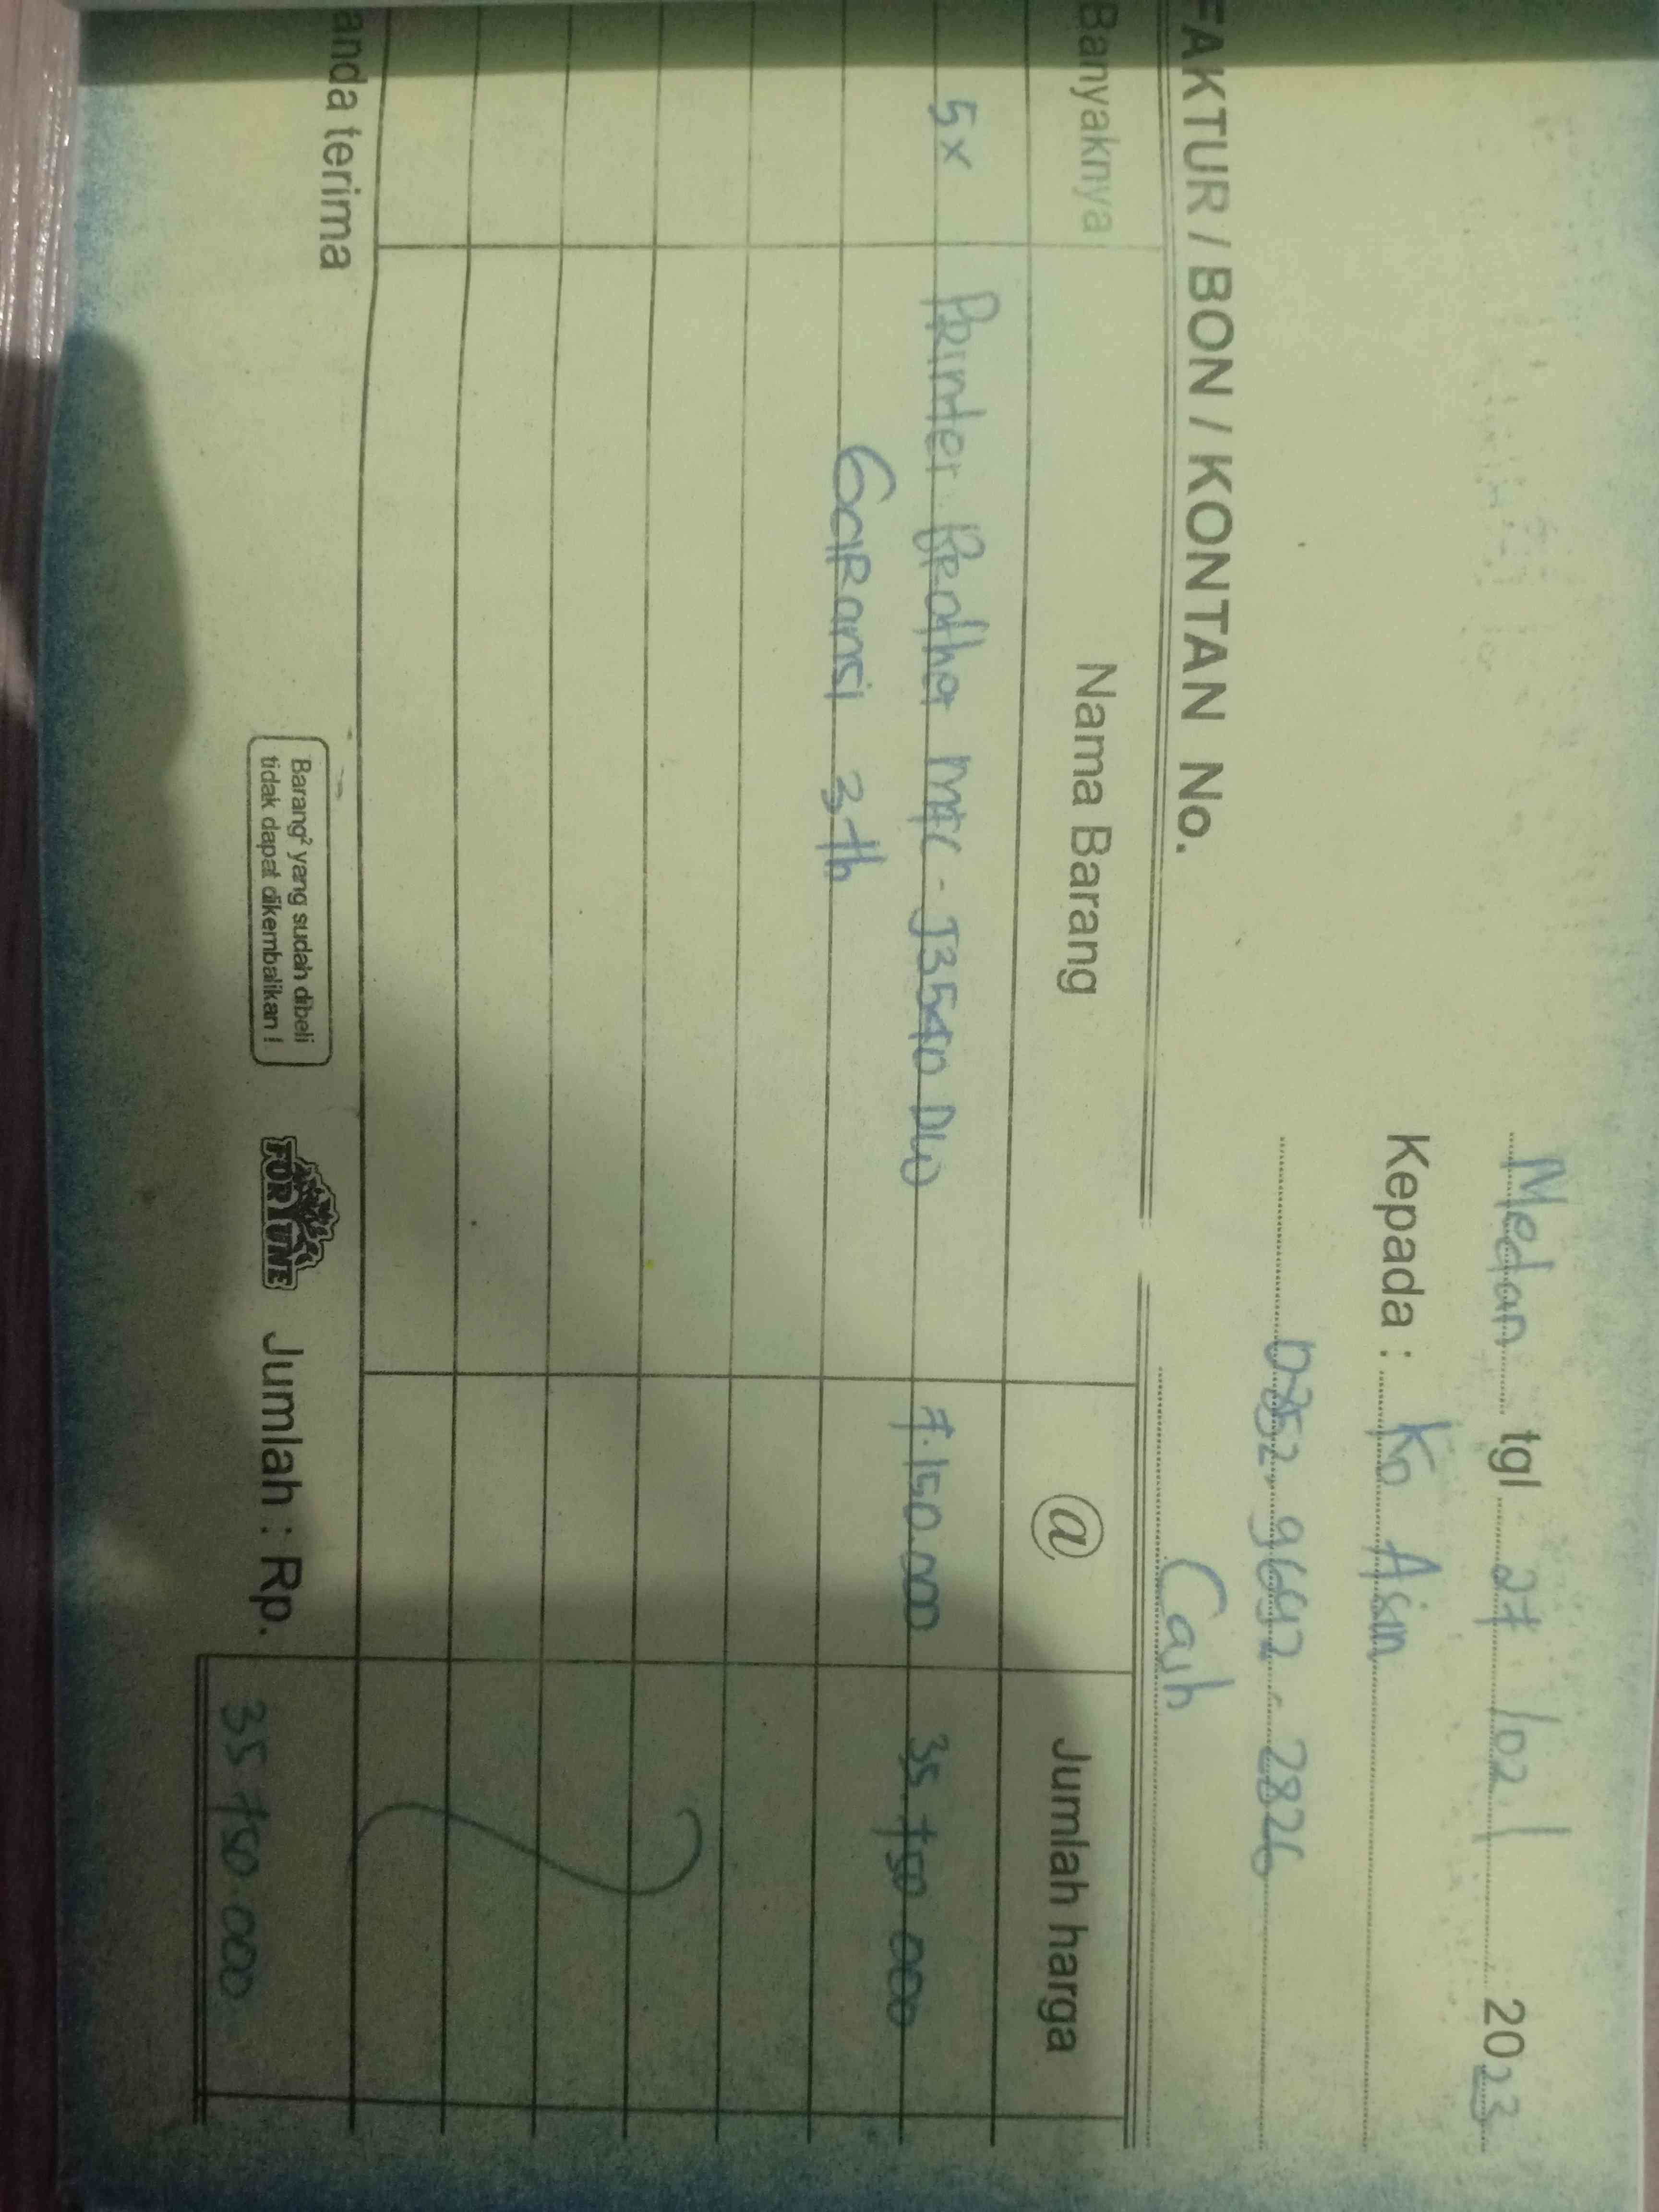 Medan tgl 27 / 02 / 2023
Kepada : Ko Asin
9692 - 2826
Cash
FAKTUR / BON / KONTAN No.
Banyaknya Nama Barang @ Jumlah harga
5x Printer Brother MFC - J3540 DW 7.150.000 35.750.000
Garansi 3 th
anda terima
Barang² yang sudah dibeli
tidak dapat dikembalikan !
FORTUNE
Jumlah : Rp. 35.750.000